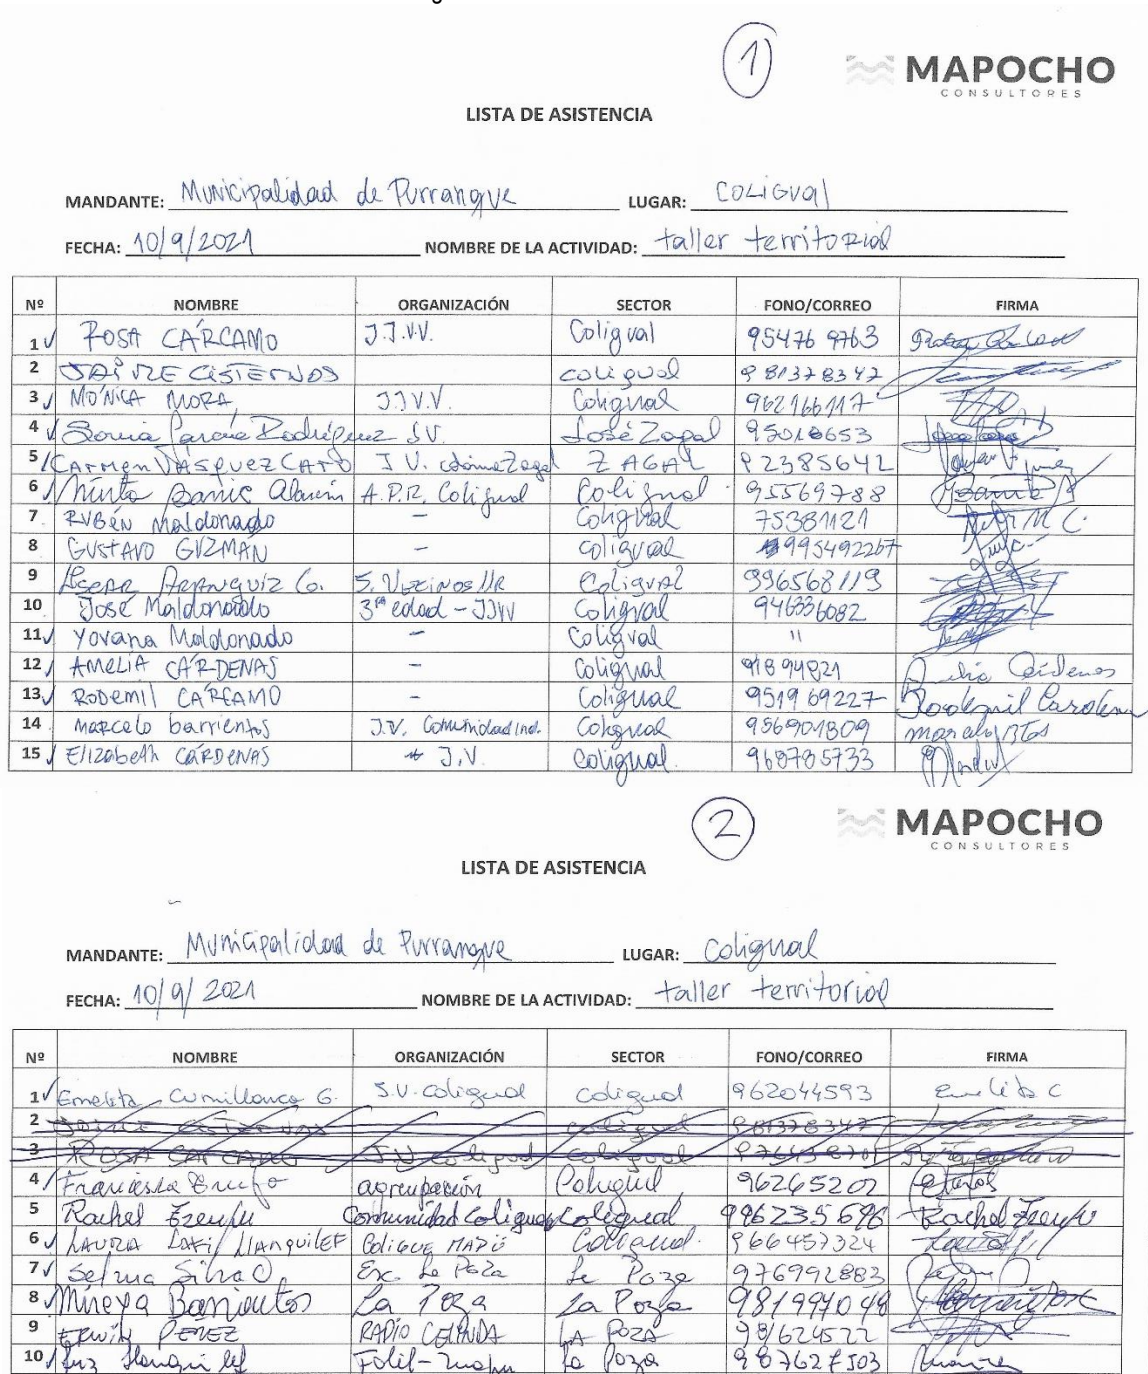 1
MAPOCHO
CONSULTORES
LISTA DE ASISTENCIA
MANDANTE: Municipalidad de Purranque LUGAR: COLIGUAL
FECHA: 10/9/2021 NOMBRE DE LA ACTIVIDAD: taller territorial
Nº NOMBRE ORGANIZACIÓN SECTOR FONO/CORREO FIRMA
1 ROSA CÁRCAMO J.J.V.V. Coligual 95476 9763
2 JAIME CISTERNAS coligual 981378347
3 MÓNICA MORA JJV.V. Coligual 962166117
4 Sonia García Rodríguez JV. José Zagal 95018653
5 CARMEN VÁSQUEZ CARO J V. ZAGAL 92385642
6 A.P.R. Coligual Coligual 95569788
7 RUBÉN Maldonado - Coligual 75381121
8 GUSTAVO GUZMAN - coligual 995492267
9 Coligual 996568119
10 José Maldonado 3ra edad - JJVV Coligual 946336082
11 Yovana Maldonado - Coligual "
12 AMELIA CÁRDENAS - Coligual 91894821 Amelia Cárdenas
13 RODEMIL CÁRCAMO - Coligual 951969227
14 marcelo barrientos J.V. Comunidad Ind. Coligual 956901809 marcelo BTos
15 Elizabeth CÁRDENAS J.V. Coligual 968785733
2
MAPOCHO
CONSULTORES
LISTA DE ASISTENCIA
MANDANTE: Municipalidad de Purranque LUGAR: Coligual
FECHA: 10/9/2021 NOMBRE DE LA ACTIVIDAD: taller territorial
Nº NOMBRE ORGANIZACIÓN SECTOR FONO/CORREO FIRMA
1 Emelita Cumillanca G. J.V. Coligual Coligual 962044593 Emelita C
2 coligual 981378347
3 ROSA CARCAMO J.V Coligual Coligual
4 Francisca agrupación Coligual 96265202
5 Rachel Comunidad Coligual Coligual 996235696 Rachel
6 LAURA LLANQUILEF Coligual 966457324
7 Selma Silva O. La Poza La Poza 976992883
8 Mireya Barrientos La Poza La Poza 981997048
9 ERWIN PEREZ RADIO LA POZA 981624522
10 Luz Llanquilef La Poza